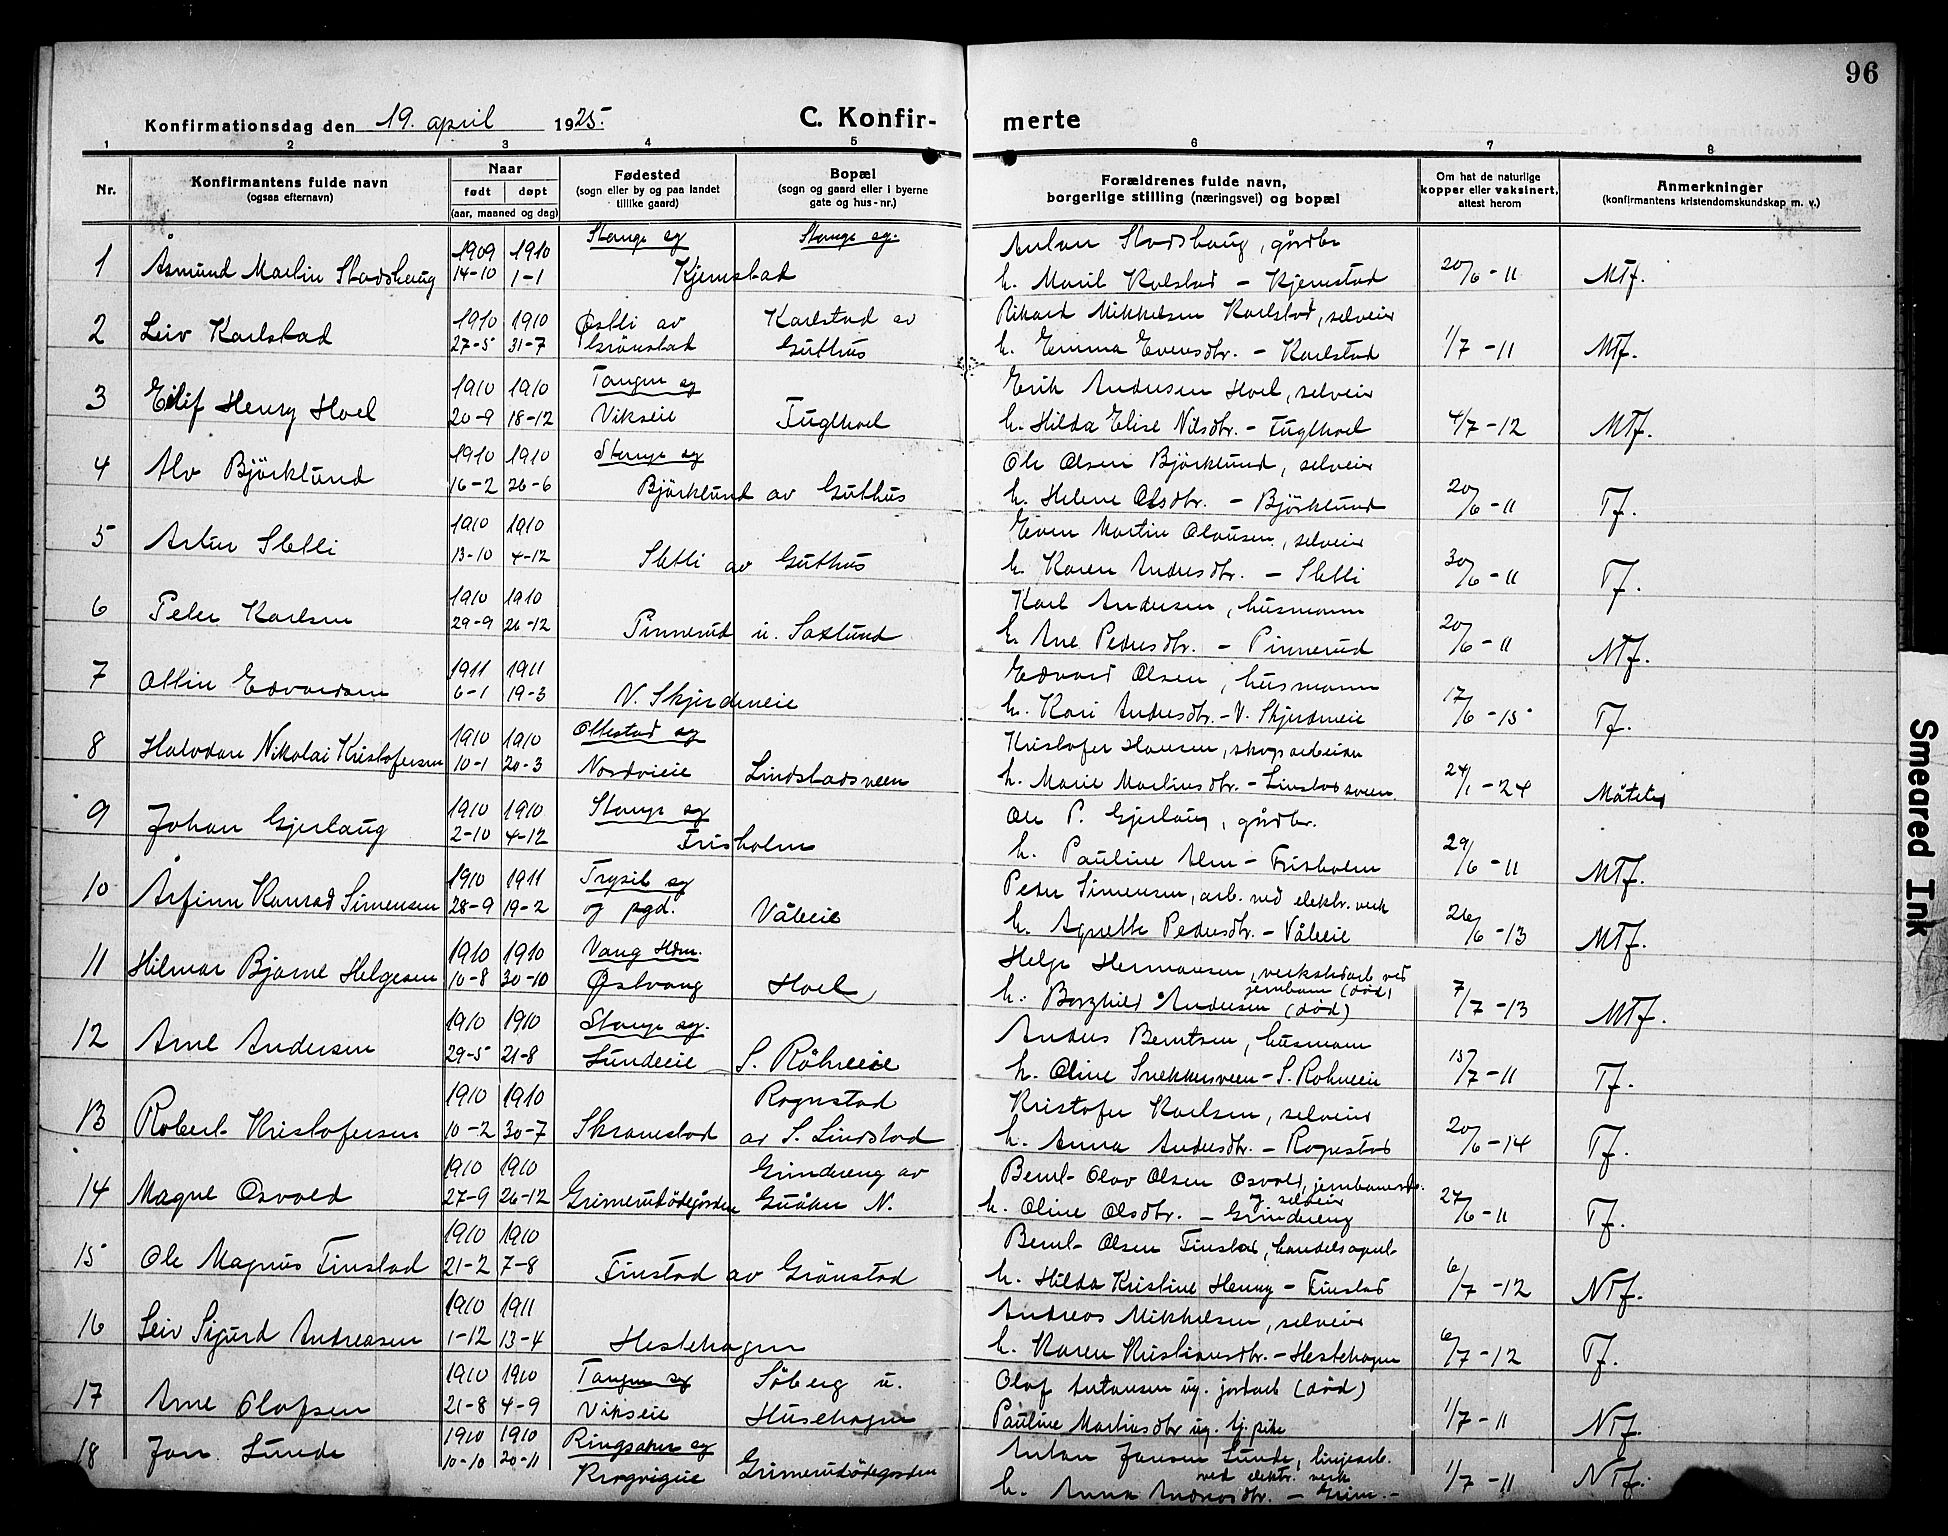 96
Konfirmationsdag den 19. april 1925.
C. Konfirmerte
1 2 3 4 5 6 7 8
Nr.
Konfirmantens fulde navn
(ogsaa efternavn)
Naar
født døpt
(aar, maaned og dag)
Fødested
(sogn eller by og paa landet
tillike gaard)
Bopæl
(sogn og gaard eller i byerne
gate og hus-nr.)
Forældrenes fulde navn,
borgerlige stilling (næringsvei) og bopæl
Om hat de naturlige
kopper eller vaksinert,
attest herom
Anmerkninger
(konfirmantens kristendomskundskap m. v.)
1909 1910 Stange sg Stange sg. Anton Stadshaug, gårdbr
1 Åsmund Martin Stadshaug 14-10 1-1 Kjemstad h. Marit Kolstad - Kjemstad 20/6-11 MTf.
1910 1910 Østli av Karlstad av Rikard Mikkelsen Karlstad, selveier
2 Leiv Karlstad 27-5 31-7 Grönstad Guthus h. Emma Evensdtr. - Karlstad 1/7-11 MTf.
1910 1910 Tangen sg Erik Andersen Hoel, selveier
3 Eilif Henry Hoel 20-9 18-12 Vikseie Fuglhoel h. Hilda Elise Nilsdtr. - Fuglhoel 4/7-12 MTf.
1910 1910 Stange sg Ole Olsen Björklund, selveier
4 Alv Björklund 16-2 26-6 Björklund av Guthus h. Helene Olsdtr. - Björklund 20/6-11 Tf.
1910 1910 Even Martin Olausen, selveier
5 Artur Sletli 13-10 4-12 Sletli av Guthus h. Karen Andersdtr. - Sletli 30/6-11 Tf.
1910 1910 Karl Andersen, husmann
6 Peter Karlsen 29-9 26-12 Pinnerud u. Saxlund h. Ane Pedersdtr. - Pinnerud 20/6-11 NTf.
1911 1911 Edvard Olsen, husmann
7 Ottin Edvardsen 6-1 19-3 N. Skjerdeneie h. Kari Andersdtr. - N. Skjerdneie 17/6-15 Tf.
1910 1910 Ottestad sg Kristofer Hansen, skogsarbeider
8 Halvdan Nikolai Kristofersen 10-1 20-3 Nordvieie Lindstadsveen h. Marie Martinsdtr. - Linstadsveen. 24/1-24 Måtelig
1910 1910 Stange sg Ole P. Gjerlaug, gårdbr.
9 Johan Gjerlaug 2-10 4-12 Frisholm h. Pauline Alm - Frisholm 29/6-11 MTf.
1910 1911 Trysil sg Peder Simensen, arb. ved elektr. verk
10 Arfinn Konrad Simensen 28-9 19-2 og pgd. Våleie h. Agnethe Pedersdtr. - Våleie 26/6-13 MTf.
1910 1910 Vang Hdm. Helge Hermansen, verkstedarb ved
11 Hilmar Bjarne Helgesen 10-8 30-10 Østvang Hoel h. Borghild Andersen (död) jernbanen (död) 7/7-13 MTf.
1910 1910 Stange sg. Anders Berntsen, husmann
12 Arne Andersen 29-5 21-8 Lundeie S. Röhneeie h. Oline Snekkersveen - S. Rohneeie 15/7-11 Tf.
1910 1910 Rognstad Kristofer Karlsen, selveier
13 Robert Kristofersen 10-2 30-7 Skramstad av S. Lindstad h. Anna Andersdtr. - Rognstad 20/6-14 Tf.
1910 1910 Grindereng av Bernt Olav Olsen Osvold, jernbanearb.
14 Magne Osvold 27-9 26-12 Grimerudödegården Guåker N. og selveier
h. Oline Olsdtr. - Grindereng 27/6-11 Tf.
1910 1910 Bernt Olsen Finstad, handelsagent
15 Ole Magnus Finstad 21-2 7-8 Finstad av Grönstad h. Hilda Kristine Henny - Finstad 6/7-12 NTf.
1910 1911 Andreas Mikkelsen, selveier
16 Leiv Sigurd Andreasen 1-12 13-4 Hestehagen h. Karen Kristiansdtr. - Hestehagen 6/7-12 Tf.
1910 1910 Tangen sg Söberg u. Olaf Antonsen ug. jordarb (död)
17 Arne Olafsen 21-8 4-9 Vikseie Husehagen Pauline Martinsdtr ug. tj.pike 1/7-11 NTf.
1910 1910 Ringsaker sg Anton Jansen Lunde, linjearb.
18 Jon Lunde 10-10 20-11 Grimerudödegården ved elektr. verk
h. Anna Andreasdtr. - Grim.- 1/7-11 NTf.
Smeared Ink